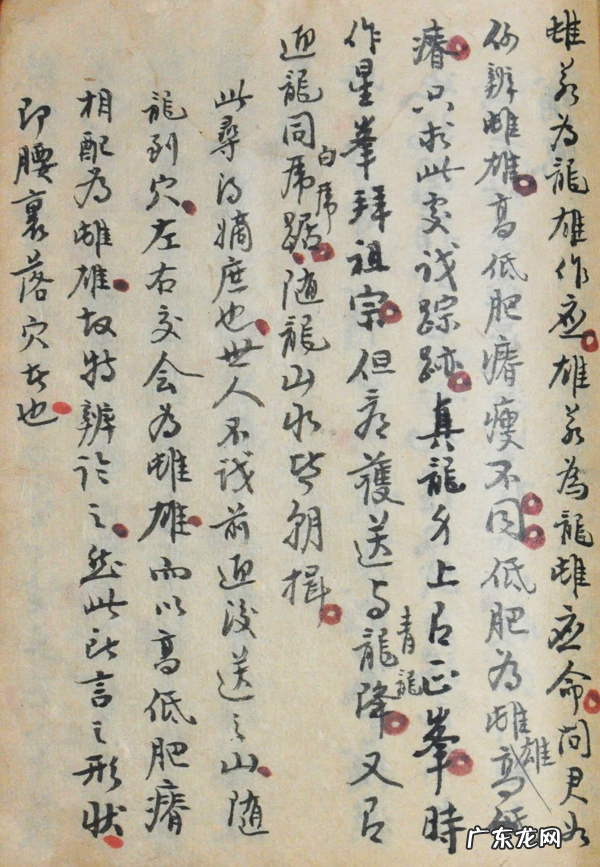 雌若為龍雄作应雄若為龍雌应命问君如
何辨雌雄高低肥瘠瘦不同低肥為雌高
雄
瘠只求此处識踪跡真龍身上有正峯時
作星峯拜祖宗但有護送与龍降又有
青龍
迎龍同虎踞随龍山水皆朝揖
白虎
此尋得嫡庶也世人不識前迎後送之山随
龍到穴左右交会為雌雄而以高低肥瘠
相配為雌雄故特辨論之然此所言之形状
即腰裏落穴者也
广东龙网